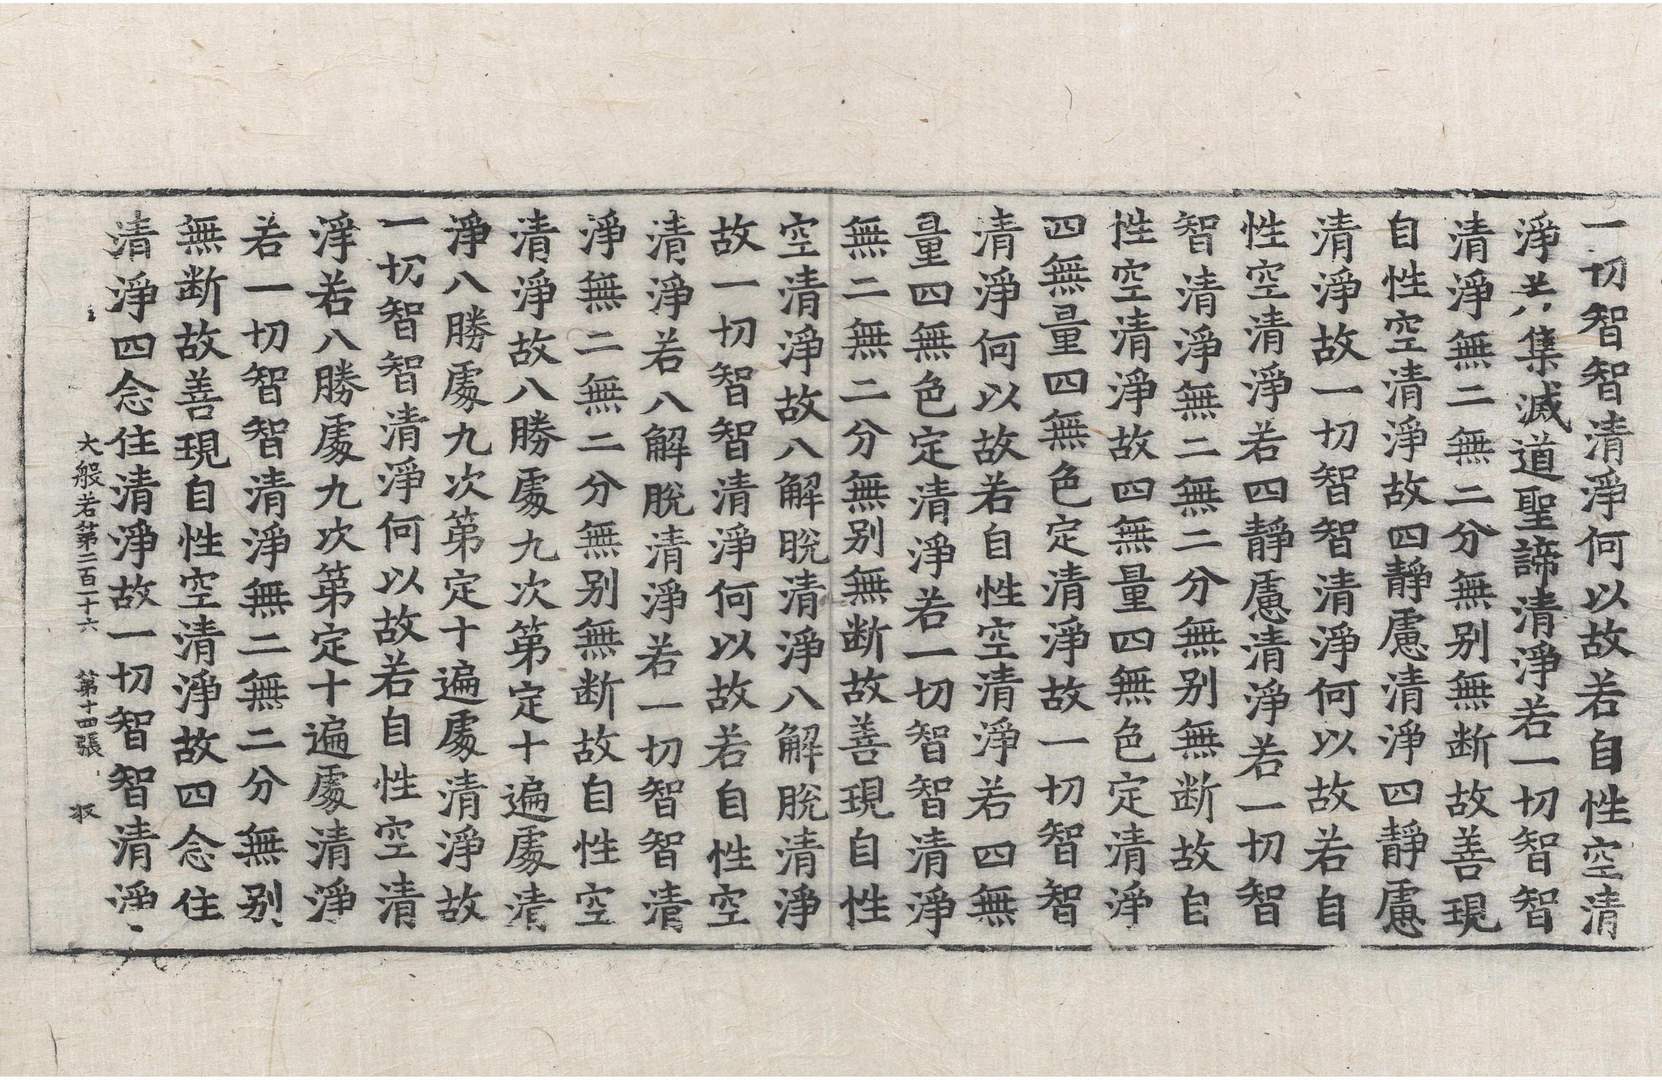 一切智智清淨何以故若自性空清
淨若集滅道聖諦清淨若一切智智
清淨無二無二分無別無断故善現
自性空清淨故四靜慮清淨四靜慮
清淨故一切智智清淨何以故若自
性空清淨若四靜慮清淨若一切智
智清淨無二無二分無別無断故自
性空清淨故四無量四無色定清淨
四無量四無色定清淨故一切智智
清淨何以故若自性空清淨若四無
量四無色定清淨若一切智智清淨
無二無二分無別無断故善現自性
空清淨故八解脫清淨八解脫清淨
故一切智智清淨何以故若自性空
清淨若八解脫清淨若一切智智清
淨無二無二分無別無断故自性空
清淨故八勝處九次第定十遍處清
淨八勝處九次第定十遍處清淨故
一切智智清淨何以故若自性空清
淨若八勝處九次第定十遍處清淨
若一切智智清淨無二無二分無別
無断故善現自性空清淨故四念住
清淨四念住清淨故一切智智清淨
大般若第二百一十六 第十四張 収